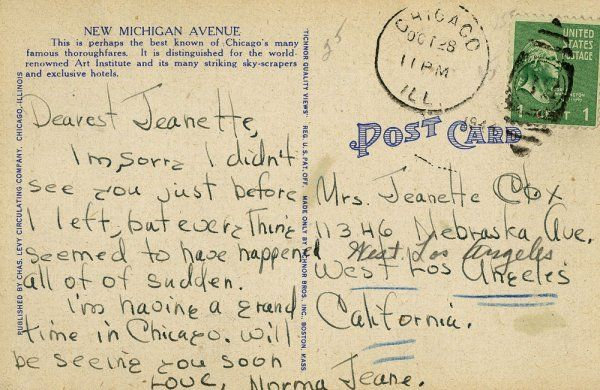 NEW MICHIGAN AVENUE
This is perhaps the best known of Chicago's many
famous thoroughfares. It is distinguished for the world-
renowned Art Institute and its many striking sky-scrapers
and exclusive hotels.
Dearest Jeanette,
I'm sorry I didn't
see you just before
I left, but every thing
seemed to have happened
all of of sudden.
I'm having a grand
time in Chicago. will
be seeing you soon
Love, Norma Jeane.
PUBLISHED BY CHAS. LEVY CIRCULATING COMPANY, CHICAGO, ILLINOIS
"TICHNOR QUALITY VIEWS" REG. U.S. PAT. OFF. MADE ONLY BY TICHNOR BROS. INC., BOSTON, MASS
CHICAGO
OCT 28
11 PM
ILL.
UNITED
STATES
POSTAGE
1
1
POST CARD
Mrs. Jeanette Cox
11346 Nebraska Ave.
West Los Angeles
West Los Angeles
California.